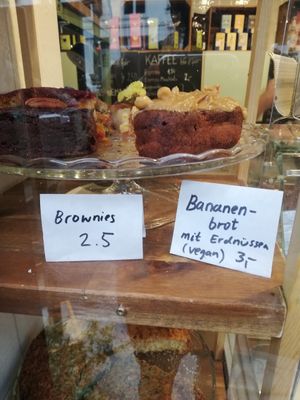 KAFFEE
Brownies
2.5
Bananen-
brot
mit Erdnüssen
(vegan) 3,-